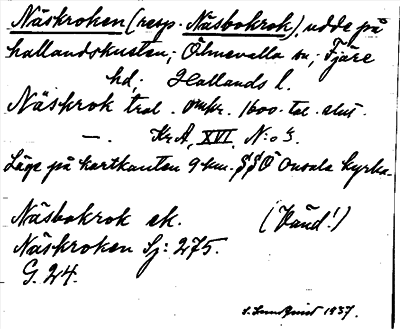 Näskroken (resp. Näsbokrok), udde på
hallandskusten; Ölmevalla sn; Fjäre
hd; Hallands l.
Näskrok trol. omkr. 1600-tal. slut.
— . Kr A, XVI, N:o 3.
Läge på kartkanten 9 km. SSÖ Onsala kyrka.
Näsbokrok ek. (Vänd!)
Näskroken Sj: 275.
G. 24.
S. Lundquist 1937.